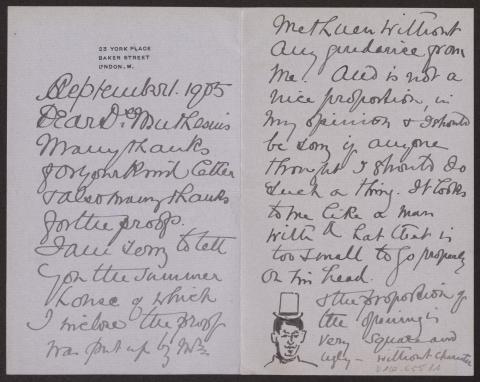 23 YORK PLACE
BAKER STREET
LONDON. W.
September 1. 1905
Dear Dr Muthesius
Many thanks
for your kind letter
& also many thanks
for the proofs.
I am sorry to tell
you the summer
house of which
I inclose the proof
was put up by Mr
Methuen without
any guidance from
me. And is not a
nice proportion, in
my opinion & I should
be sorry if anyone
thought I should do
such a thing. It looks
to me like a man
with a hat that is
too small to go properly
on his head.
& the proportion of
the opening is
very square and
ugly - without character